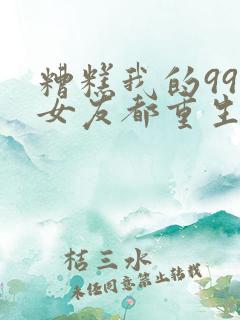 糟糕我的99
女友都重生
桔三水
未经同意禁止转载